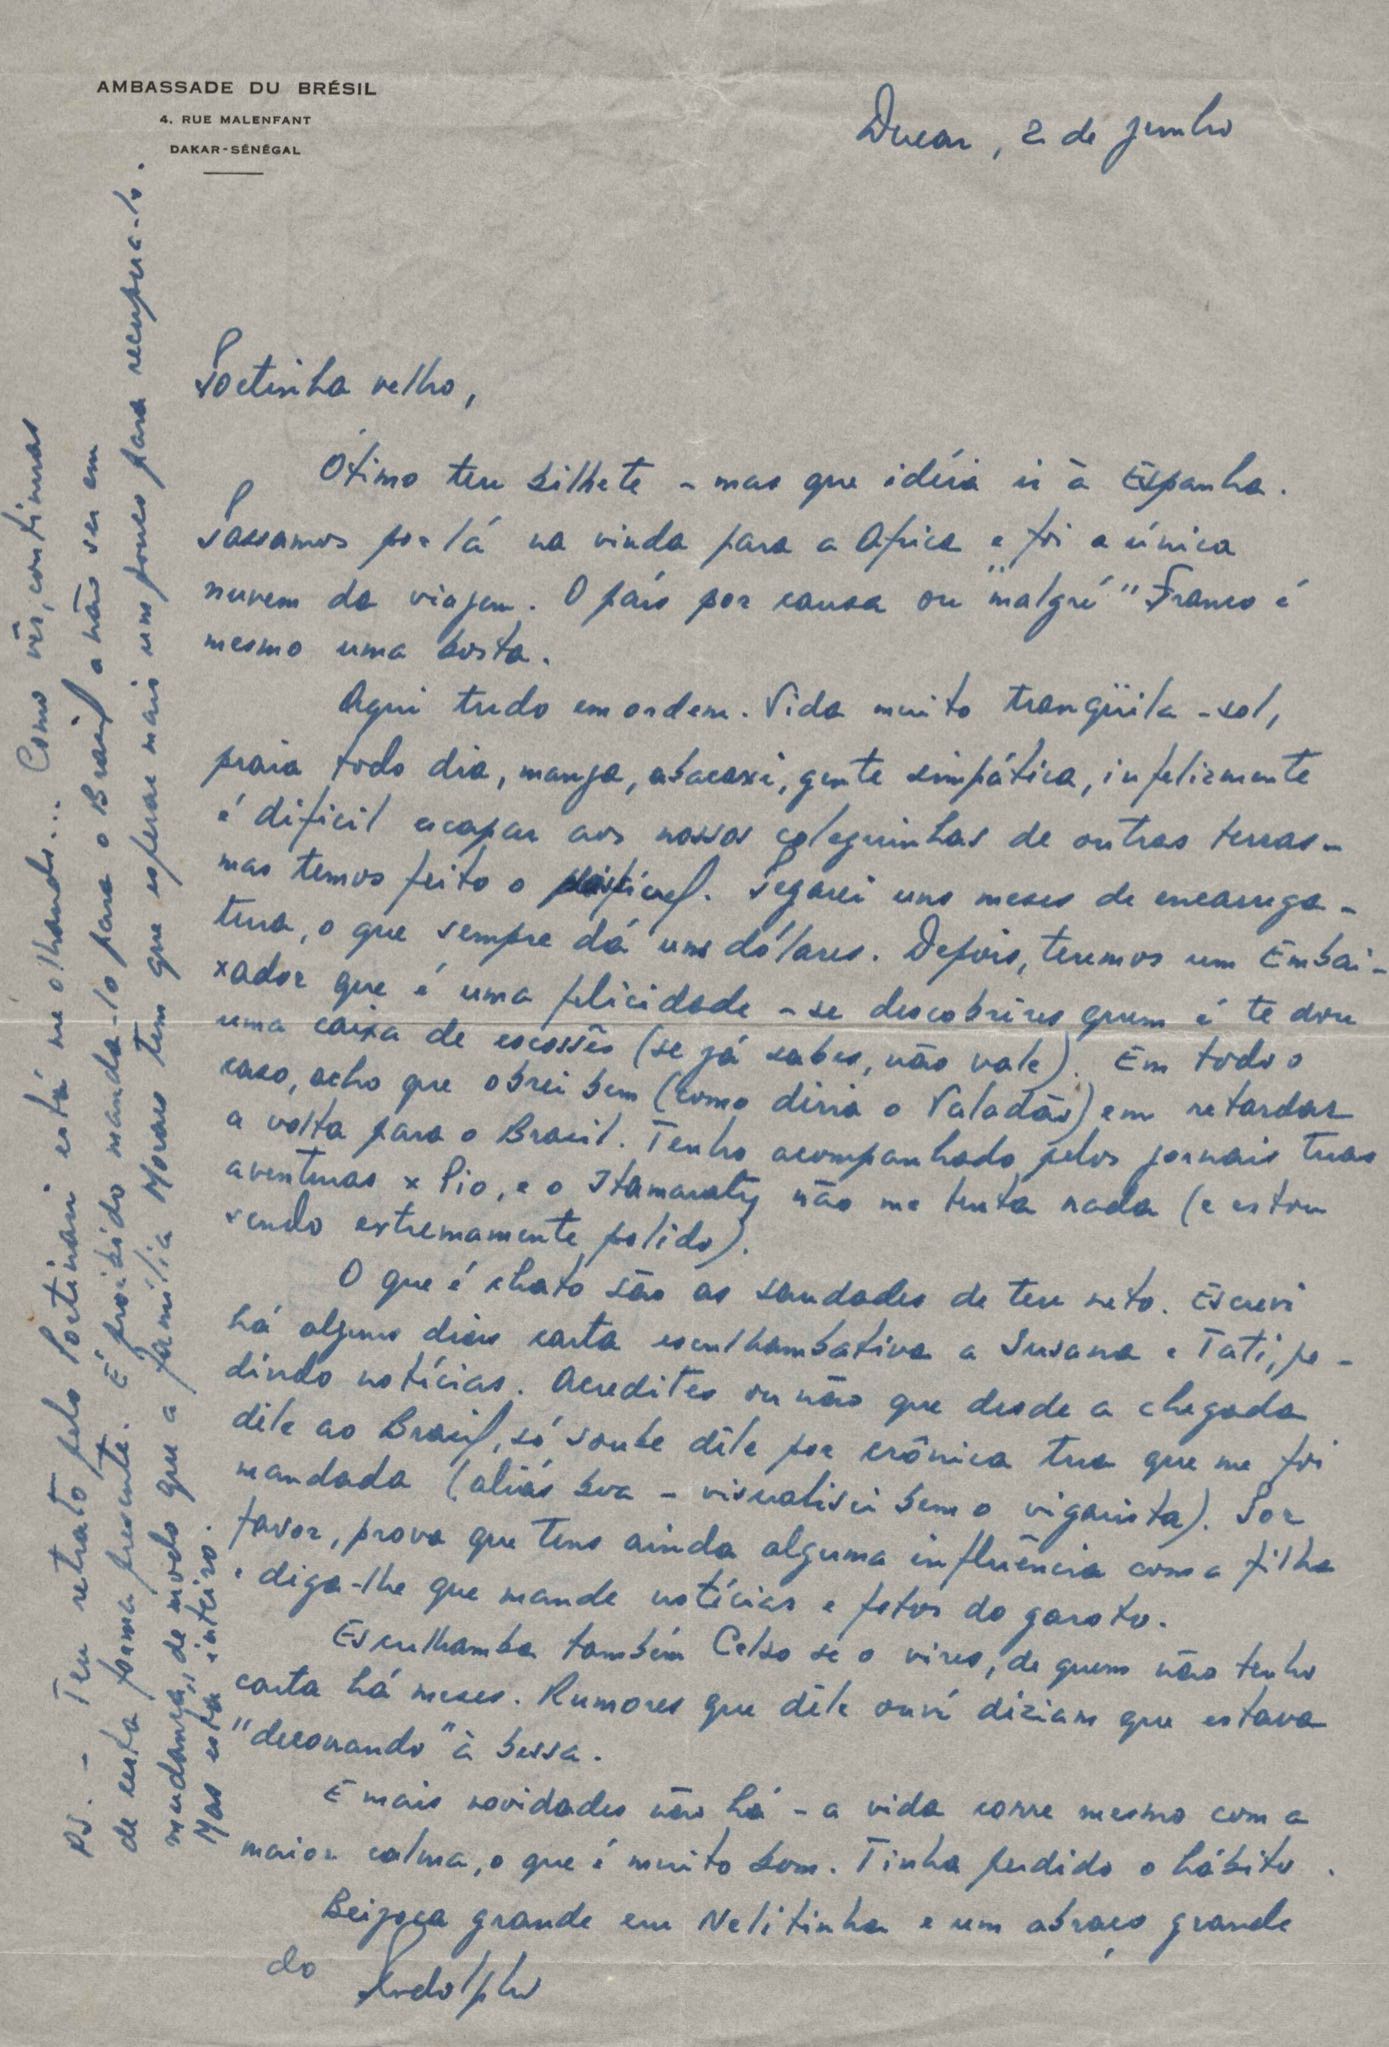 AMBASSADE DU BRÉSIL
4, RUE MALENFANT
DAKAR-SÉNÉGAL
Ducar, 2 de junho
Poetinha velho,
Ótimo teu bilhete - mas que idéia ir à Espanha.
Passamos por lá na vinda para a Africa e foi a única
nuvem da viagem. O país por causa ou "malgré" Franco é
mesmo uma bosta.
Aqui tudo em ordem. Vida muito tranqüila - sol,
praia todo dia, manga, abacaxi, gente simpática, infelizmente
é dificil escapar aos nossos coleguinhas de outras terras -
mas temos feito o possível. Pegarei uns meses de encarrega-
tura, o que sempre dá uns dólares. Depois, teremos um Embai-
xador que é uma felicidade - se descobrires quem é te dou
uma caixa de escossês (se já sabes, não vale). Em todo o
caso, acho que obrei bem (como diria o Valadão) em retardar
a volta para o Brasil. Tenho acompanhado pelos jornais tuas
aventuras x Pio, e o Itamaraty não me tenta nada (e estou
sendo extremamente polido).
O que é chato são as saudades de teu neto. Escrevi
há alguns dias carta esculhambativa a Susana e Tati, pe-
dindo notícias. Acredites ou não que desde a chegada
dêle ao Brasil, só soube dêle por crônica tua que me foi
mandada (aliás boa - visualisei bem o vigarista). Por
favor, prova que tens ainda alguma influência com a filha
e diga-lhe que mande notícias e fotos do garoto.
Esculhamba também Celso se o vires, de quem não tenho
carta há meses. Rumores que dêle ouví diziam que estava
"decorando" à bessa.
E mais novidades não há - a vida corre mesmo com a
maior calma, o que é muito bom. Tinha perdido o hábito.
Beijoca grande em Nelitinha e um abraço grande
do Rodolpho
PS. - Teu retrato pelo Portinari está me olhando... Como vês, continuas
de certa forma presente. É proibido manda-lo para o Brasil a não ser em
mudança, de modo que a família Moraes tem que esperar mais um pouco para recupera-lo.
Mas está inteiro.